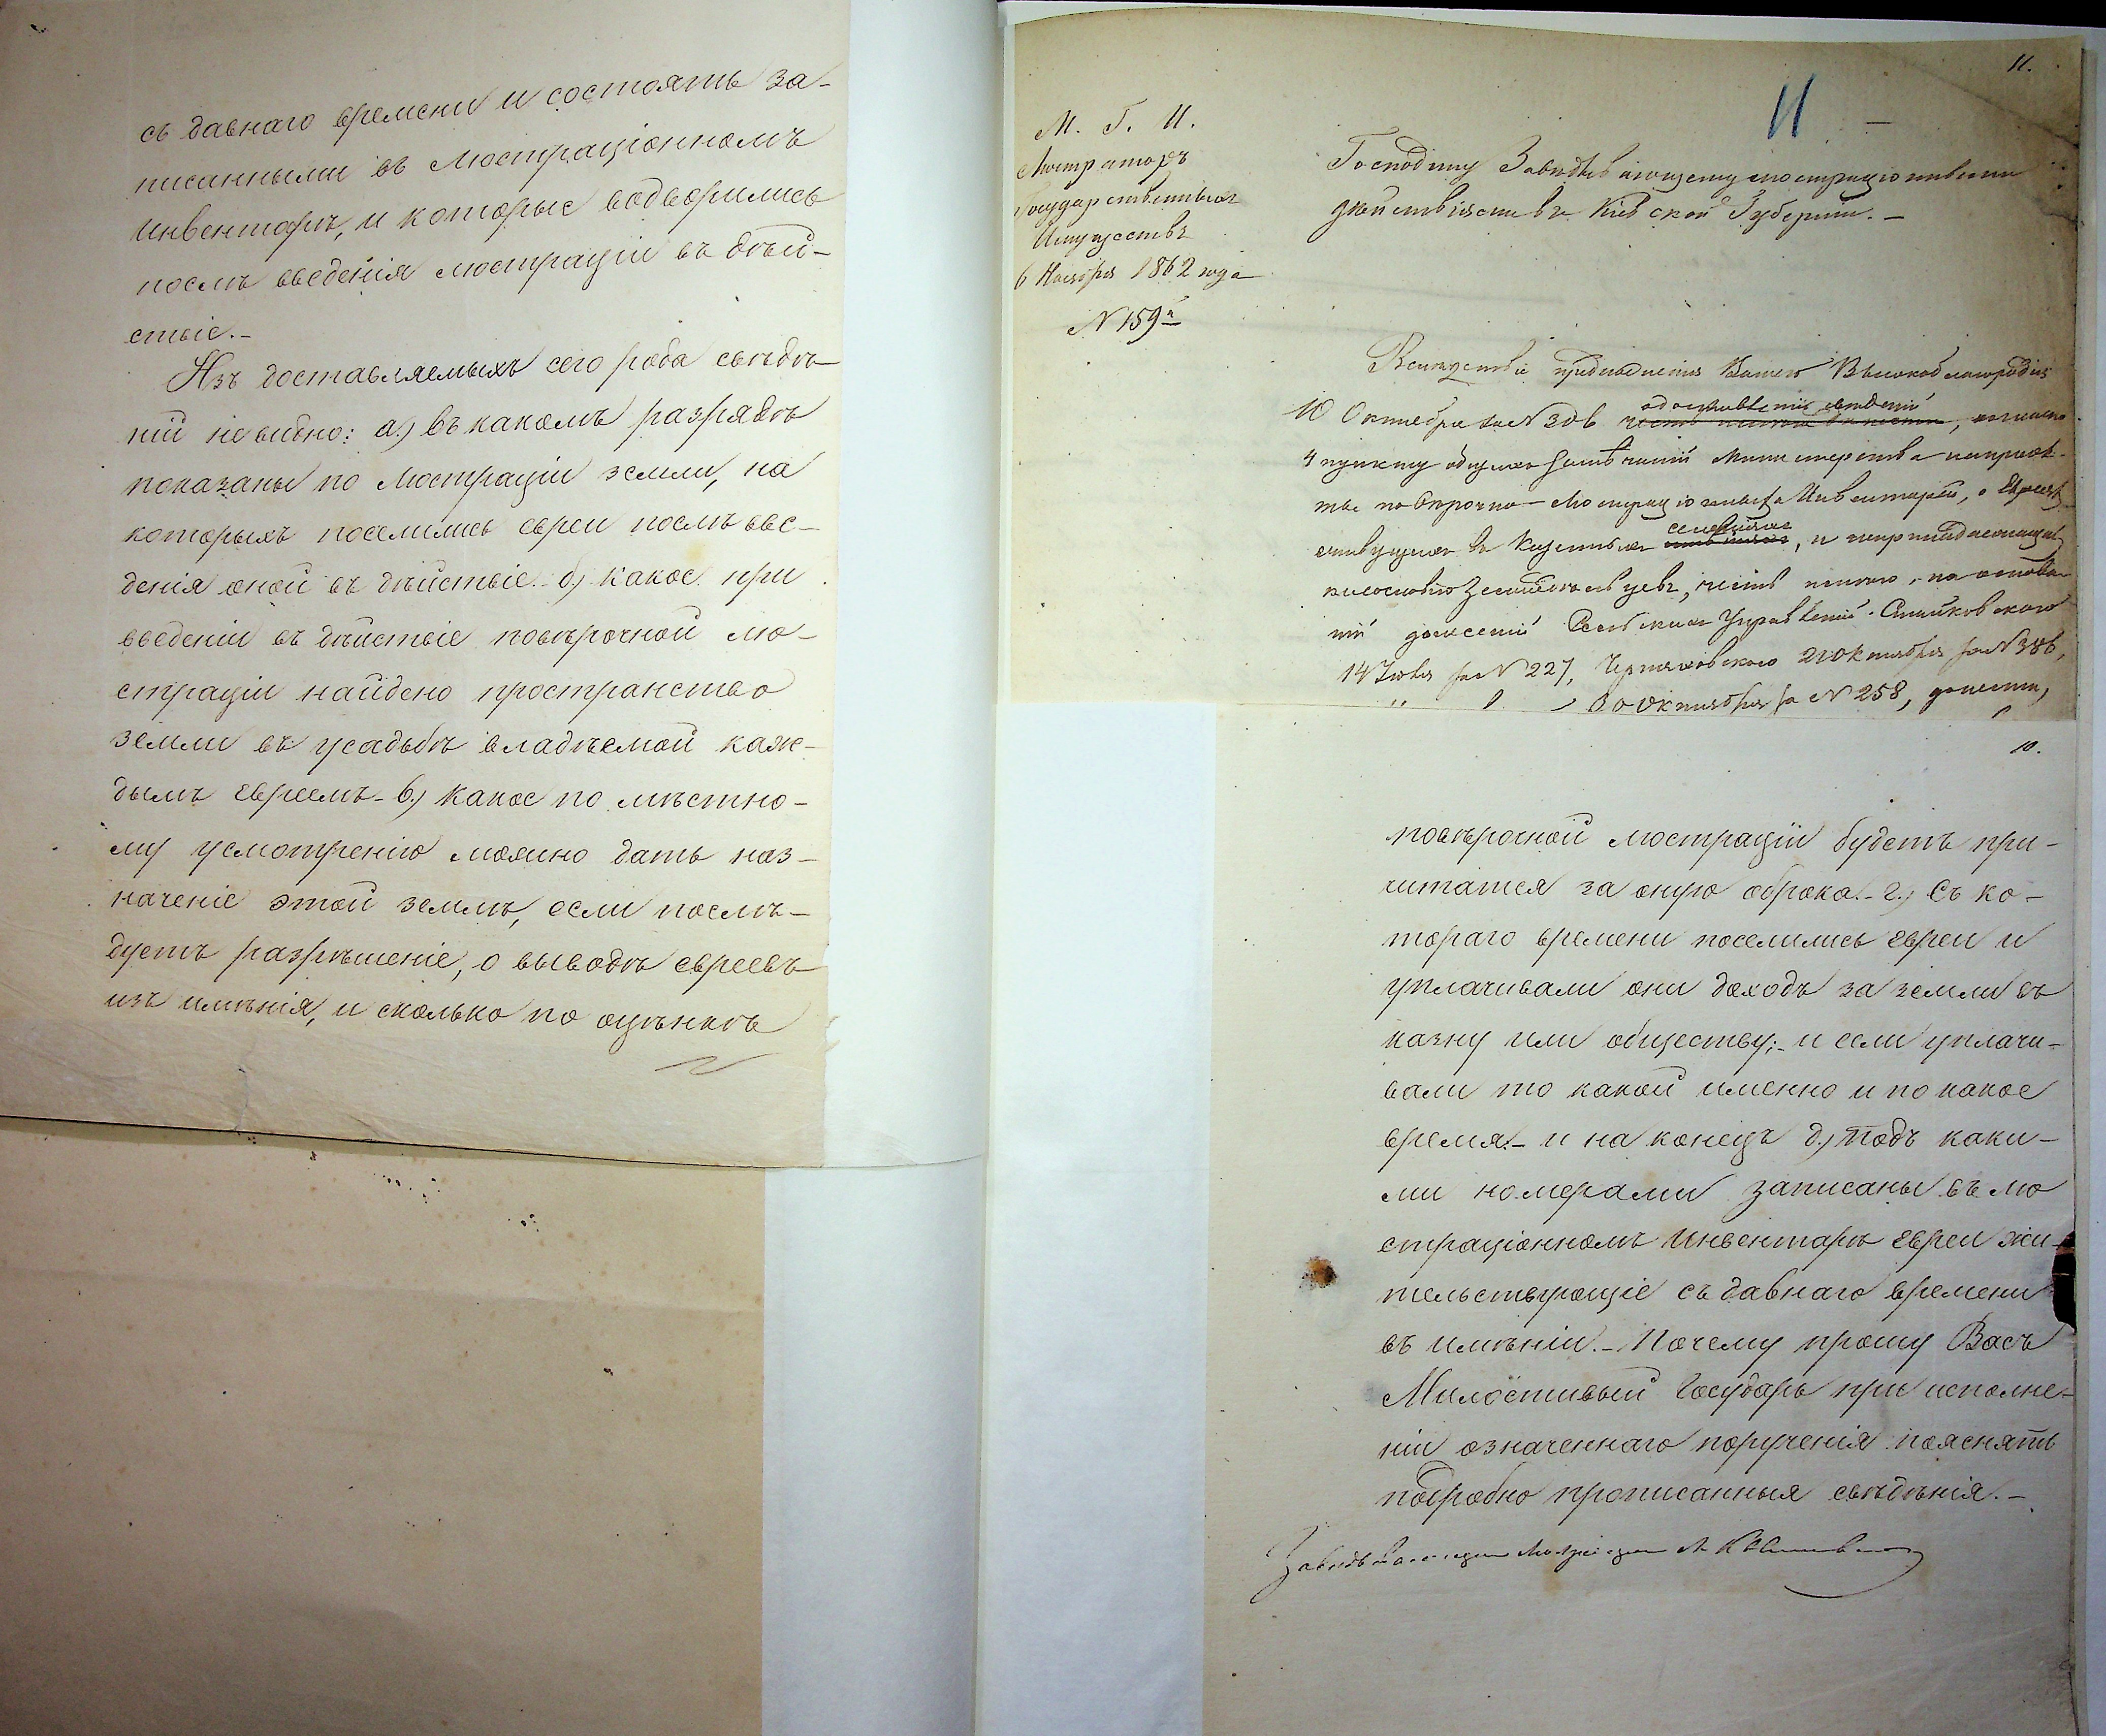 съ давнаго времени и состоятъ за-
писанными въ Люстраціонномъ
Инвентарѣ, и которые водворились
послѣ введенія люстраціи въ дѣй-
ствіе.-
Изъ доставляемыхъ сего рода свѣдѣ-
ній не видно: а.) въ какомъ разрядѣ
показаны по Люстраціи земли, на
которыхъ поселились евреи послѣ вве-
денія оной въ дѣйствіе. б.) какое при
введеніи въ дѣйствіе повѣрочной лю-
страціи найдено пространство
земли въ усадьбѣ владѣемой каж-
дымъ евреемъ- в.) какое по мѣстно-
му усмотренію можно дать наз-
наченіе этой землѣ, если послѣ-
дуетъ разрѣшеніе, о выводѣ евреевъ
изъ имѣнія, и сколько по оцѣнкѣ
11.
11 -
М. Г. И.
Люстраторъ
Государственныхъ
Имуществъ
6 Ноября 1862 года
N 159
Господину Завѣдывающему люстраціонными
дѣйствіями въ Кіевской Губерніи.-
Вслѣдствіе предписанія Вашего Высокоблагородія
10 Октября за N 306 о доставленіи свѣденій,
4 пункту общихъ замѣчаній Министерства на проэк-
ты повѣрочно-Люстраціонныхъ Инвентарей, о Евреяхъ
живущихъ въ Казенныхъ селеніяхъ, и непринадлежащихъ
къ сословію Земледѣльцевъ, честь имѣю, на основа-
ніи донесеній Сельскихъ Управленій
14 Іюля за N 227, Черняховскаго 21 Октября за N 386,
30 Октября за N 258, донести,
10.
повѣрочной люстраціи будетъ при-
читатся за оную оброка.- г.) Съ ко-
тораго времени поселились евреи и
уплачивали они доходъ за земли въ
казну или обществу;- и если уплачи-
вали то какой именно и по какое
время.- и на конецъ д.) Подъ каки-
ми номерами записаны въ лю
страціонномъ Инвентарѣ евреи жи-
тельствующіе съ давнаго времени
въ имѣніи.- Почему прошу Васъ
Милостивый Государь при исполне-
ніи означеннаго порученія пояснять
подробно прописанныя свѣдѣнія.-
Завѣдывающій